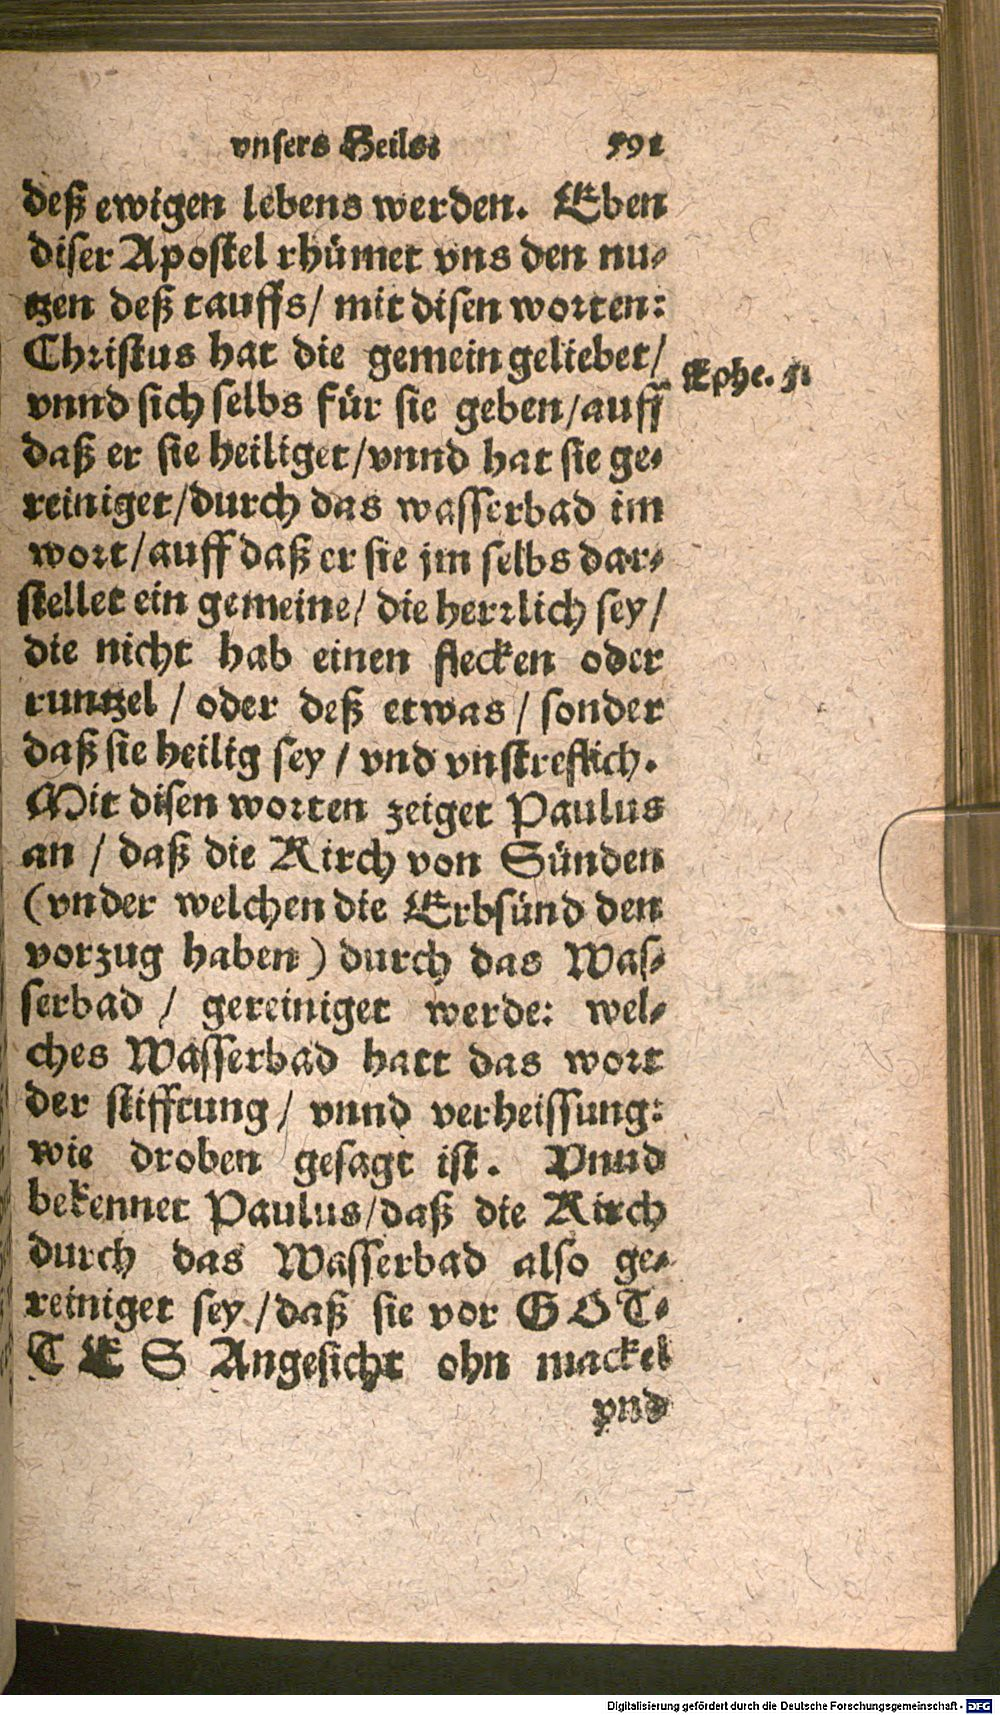 vnsers Heils. 591
deß ewigen lebens werden. Eben
diser Apostel rhümet vns den nu-
tzen deß tauffs/ mit disen worten:
Christus hat die gemein geliebet/
vnnd sich selbs für sie geben/auff
Ephe. 5.
daß er sie heiliget/vnnd hat sie ge-
reiniget/durch das wasserbad im
wort/auff daß er sie jm selbs dar-
stellet ein gemeine/ die herrlich sey/
die nicht hab einen flecken oder
runtzel / oder deß etwas / sonder
daß sie heilig sey / vnd vnstreflich.
Mit disen worten zeiget Paulus
an / daß die Kirch von Sünden
(vnder welchen die Erbsünd den
vorzug haben) durch das Was-
serbad / gereiniget werde: wel-
ches Wasserbad hatt das wort
der stifftung/ vnnd verheissung:
wie droben gesagt ist. Vnnd
bekennet Paulus/daß die Kirch
durch das Wasserbad also ge-
reiniget sey/daß sie vor GOT-
TES Angesicht ohn mackel
vnd
Digitalisierung gefördert durch die Deutsche Forschungsgemeinschaft - DFG